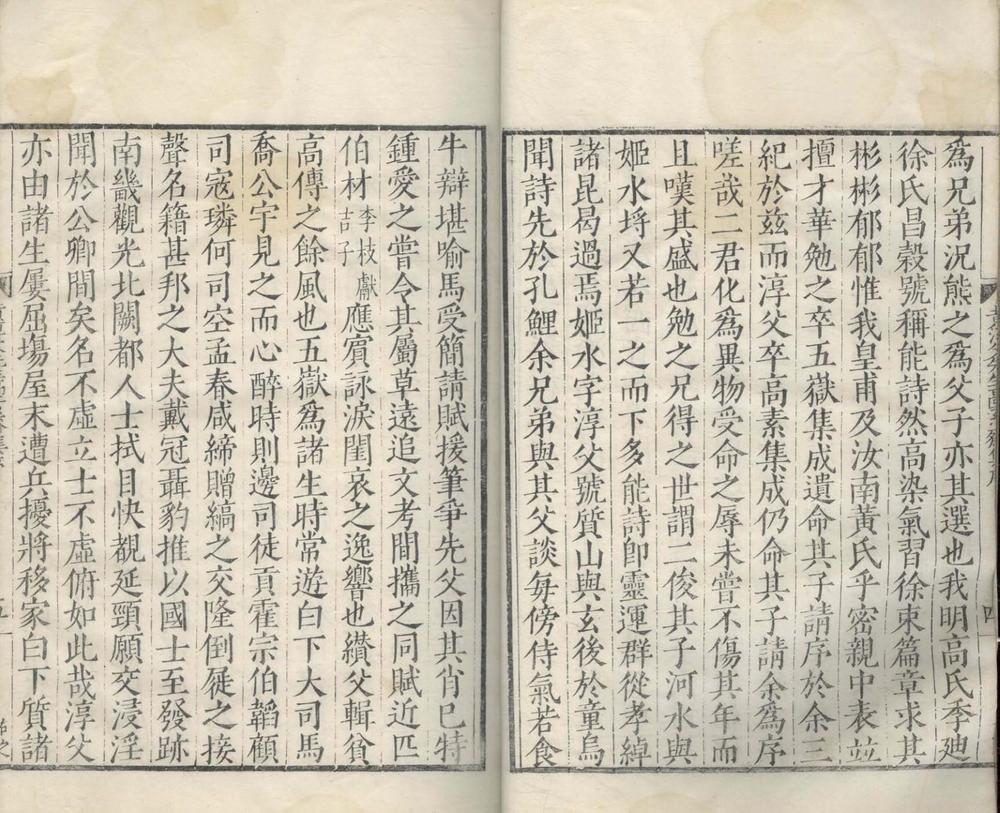 為兄弟況熊之為父子亦其選也我明高氏季廸
徐氏昌穀號稱能詩然高染氣習徐束篇章求其
彬彬郁郁惟我皇甫及汝南黃氏乎密親中表並
擅才華勉之卒五嶽集成遺命其子請序於余三
紀於茲而淳父卒高素集成仍命其子請余為序
嗟哉二君化為異物受命之辱未嘗不傷其年而
且嘆其盛也勉之兄得之世謂二俊其子河水與
姬水埒又若一之而下多能詩卽靈運群從孝綽
諸昆曷過焉姬水字淳父號質山與玄後於童烏
聞詩先於孔鯉余兄弟與其父談每傍侍氣若食
牛辯堪喻馬受簡請賦援筆爭先父因其肖巳特
鍾愛之嘗令其屬草遠追文考間攜之同賦近匹
伯材李枝獻吉子應賓詠淚閨哀之逸響也纘父輯貧
高傳之餘風也五嶽為諸生時常遊白下大司馬
喬公宇見之而心醉時則邊司徒貢霍宗伯韜顧
司寇璘何司空孟春咸締贈縞之交隆倒屣之接
聲名籍甚邦之大夫戴冠聶豹推以國士至發跡
南畿觀光北闕都人士拭目快覩延頸願交浸淫
聞於公卿間矣名不虛立士不虛俯如此哉淳父
亦由諸生屢屈塲屋末遭兵擾將移家白下質諸
四